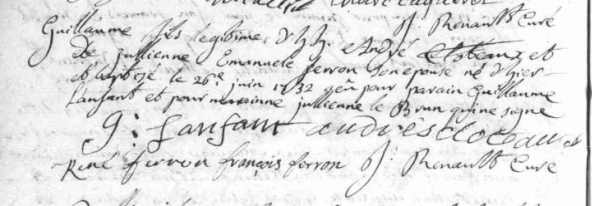 J. Renault Curé
Guillaume fils legitime d'h.h. André Cloteaux et
de jullienne Emanuele ferron son epouse né d'hier
et baptizé le 26e juin 1732 a eu pour parain Guillaume
Lanfant et pour maraine jullienne le Brun qui ne signe
G: Lanfant andrés clotaux
René ferron françois ferron J. Renault Curé